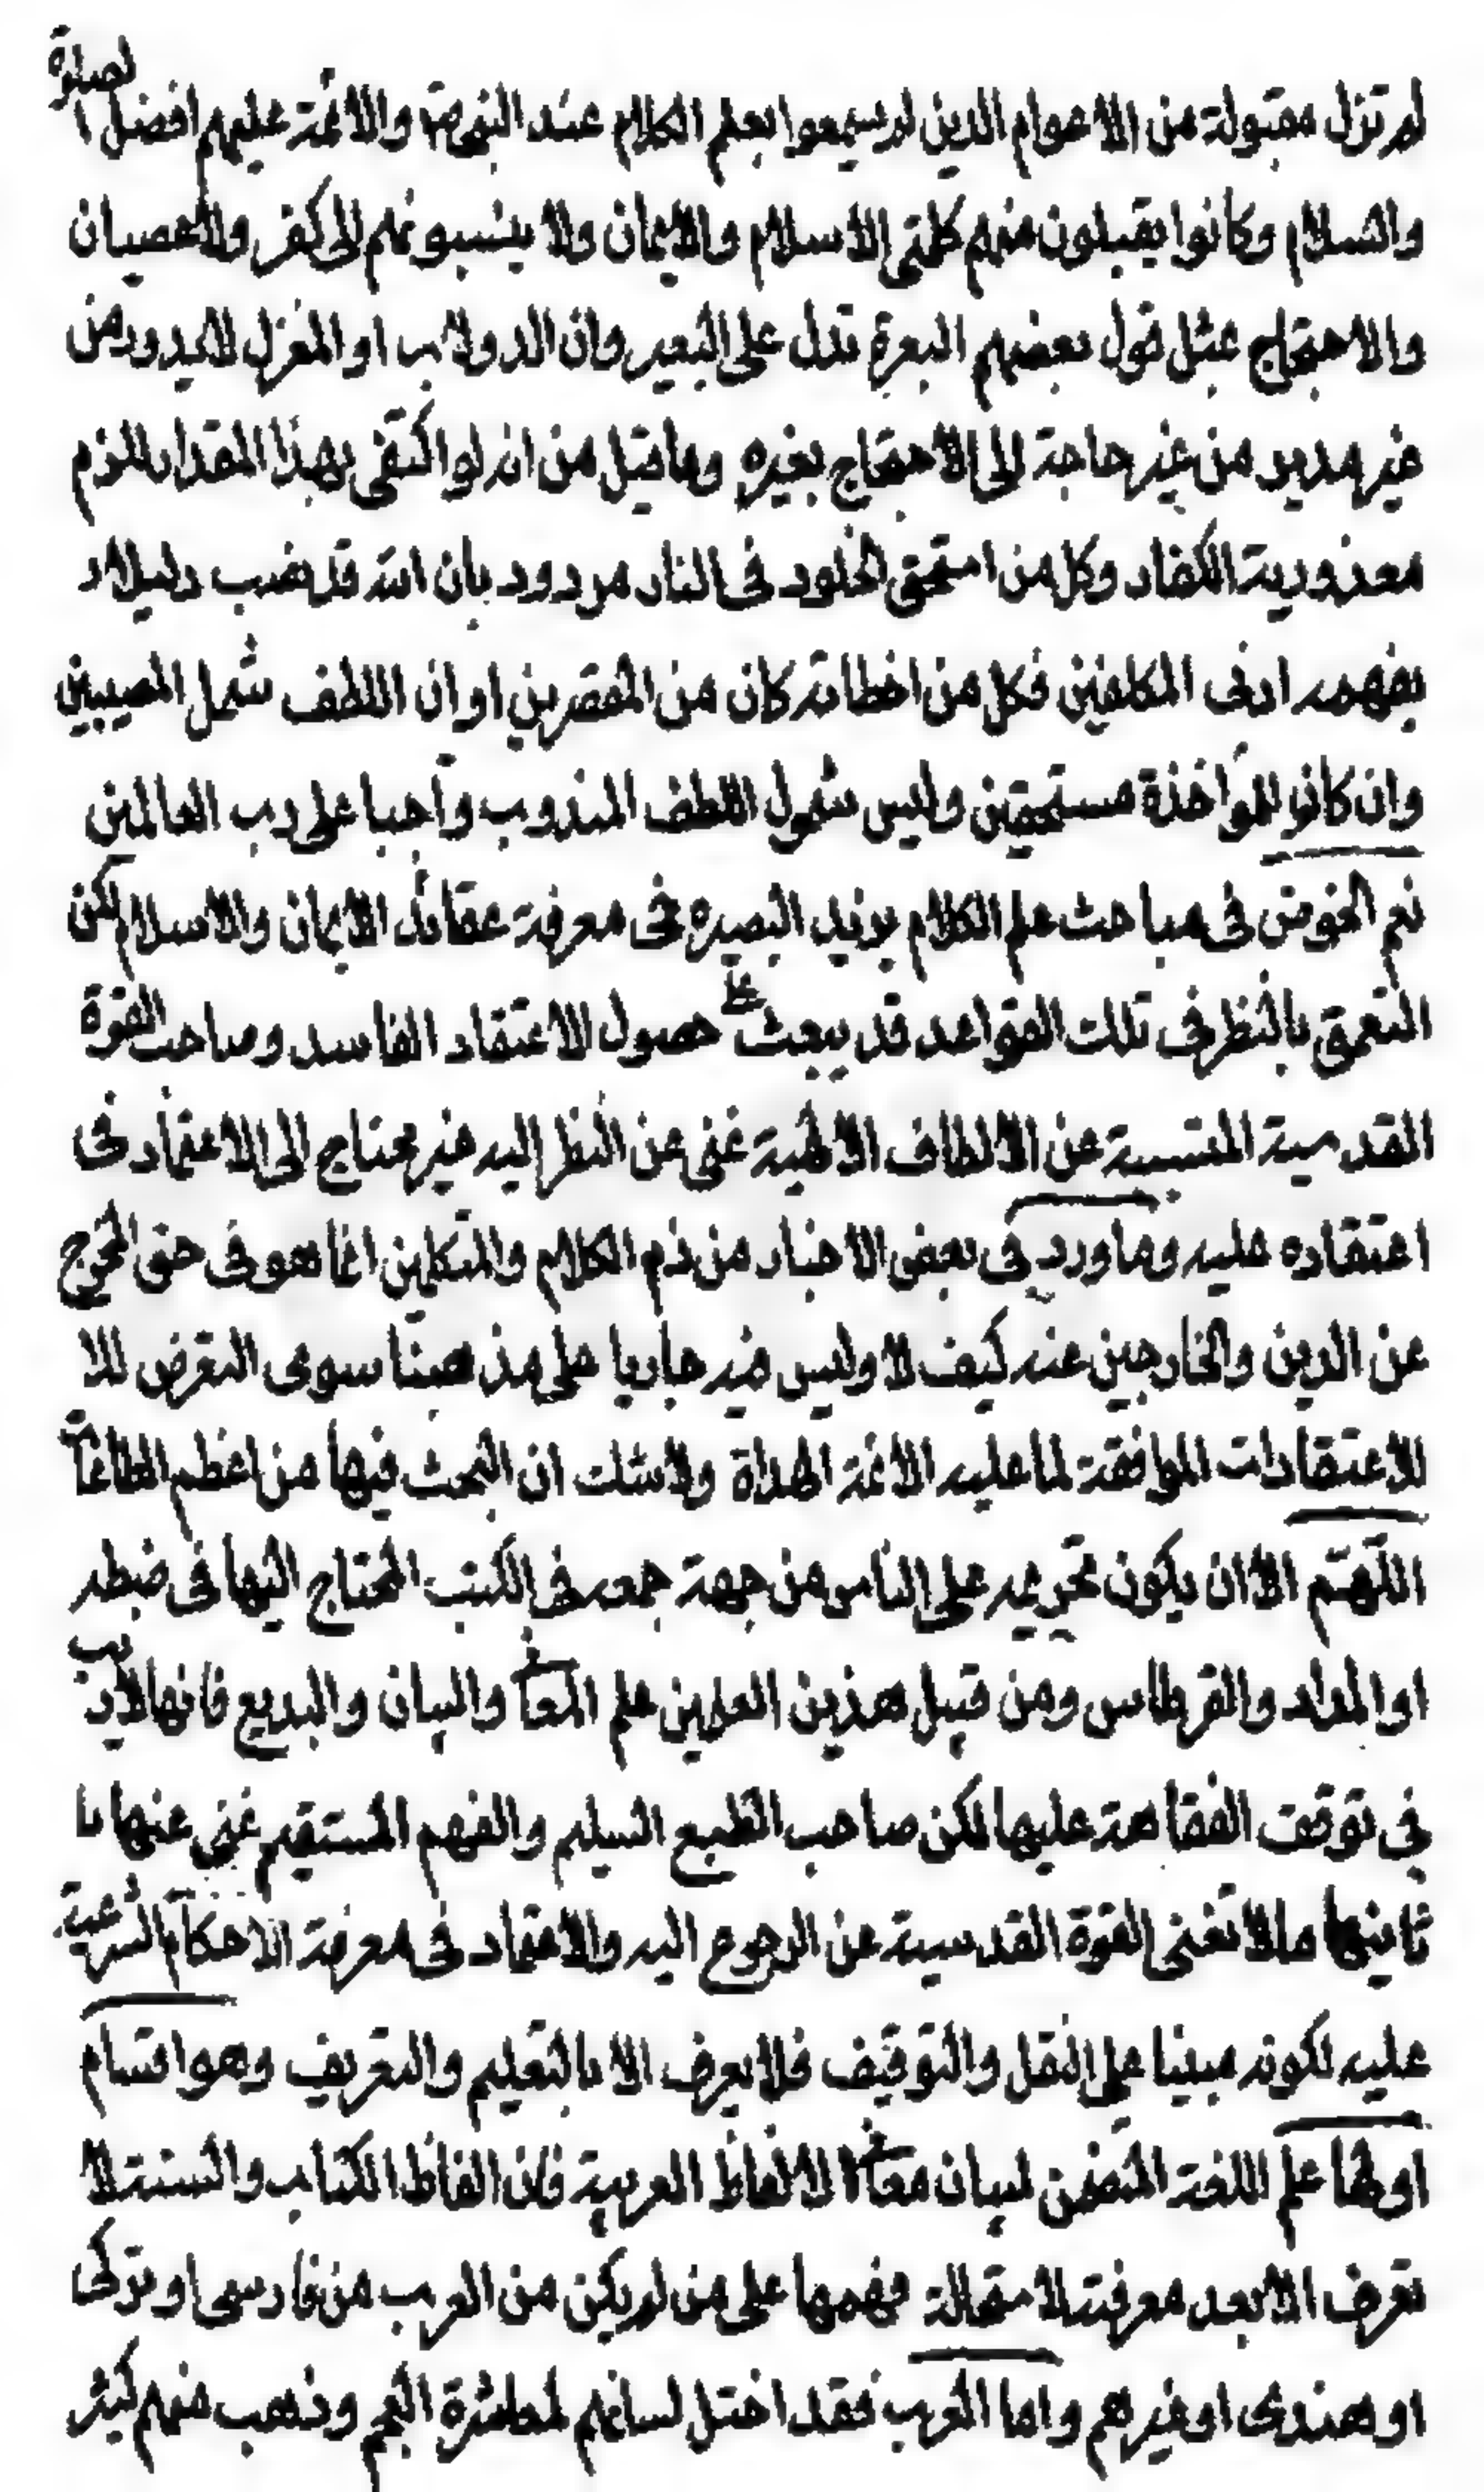 لم تزل مقبولة من الاعوام الذين لم يسمعوا بعلم الكلام عند النبي ص والائمة عليهم افضل الصلوة
والسلام وكانوا يقبلون منهم كلمتى الاسلام والايمان ولا ينسبونهم الى كفر ولا عصيان
والاحتجاج بمثل قول بعضهم البعرة تدل على البعير وان الدولاب او المغزل لا يدور من
غير مدير من غير حاجة الى الاحتجاج بغيره وما قيل من انه لو اكتفى بهذا المقدار للزم
معذورية الكفار وكل من استحق الخلود فى النار مردود بان الله قد نصب دليلا
يفهمه ادنى المكلفين فكل من اخطائه كان من المقصرين او ان اللطف شمل المصيبين
وان كانوا للمؤاخذة مستحقين وليس شمول اللطف المندوب واجبا على رب العالمين
نعم الخوض فى مباحث علم الكلام يزيد البصيره فى معرفة عقائد الايمان والاسلام لكن
التعمق بالنظر فى تلك القواعد قد يبعث على حصول الاعتقاد الفاسد وصاحب القوة
القدسية عن الالطاف الالهية غنى عن النظر اليه غير محتاج الى الاعتماد فى
اعتقاده عليه وما ورد فى بعض الاخبار من ذم الكلام والمتكلمين انما هو فى حق المخرج
عن الدين والخارجين عنه كيف لا وليس فيه جاريا على مذهبنا سوى التعرض للا
للاعتقادات الموافقة لما عليه الائمة الهداة ولا شك ان البحث فيها من اعظم الطاعات
اللهم الا ان يكون تحريمه على الناس من جهة جمعه فى الكتب المحتاج اليها فى ضبطه
او المداد والقرطاس ومن قبيل هذين العلمين علم المعانى والبيان والبديع فانها لا ريب
فى توقف الفقاهة عليها لكن صاحب الطبع السليم والفهم المستقيم غنى عنها
ثانيها ما لا تغنى القوة القدسية عن الرجوع اليه والاعتماد فى معرفة الاحكام الشرعية
عليه لكونه مبنيا على النقل والتوقيف فلا يعرف الا بالتعليم والتعريف وهو اقسام
اولها علم اللغة المتضمن لبيان معانى الالفاظ العربية فان الفاظ الكتاب والسنة لا
تعرف الا بعد معرفته لا فهمها على من لم يكن من العرب من فارسى او تركى
او هندى او غيرهم واما العرب فقد اختل لسانهم لمعاشرة العجم وذهب منهم كثير